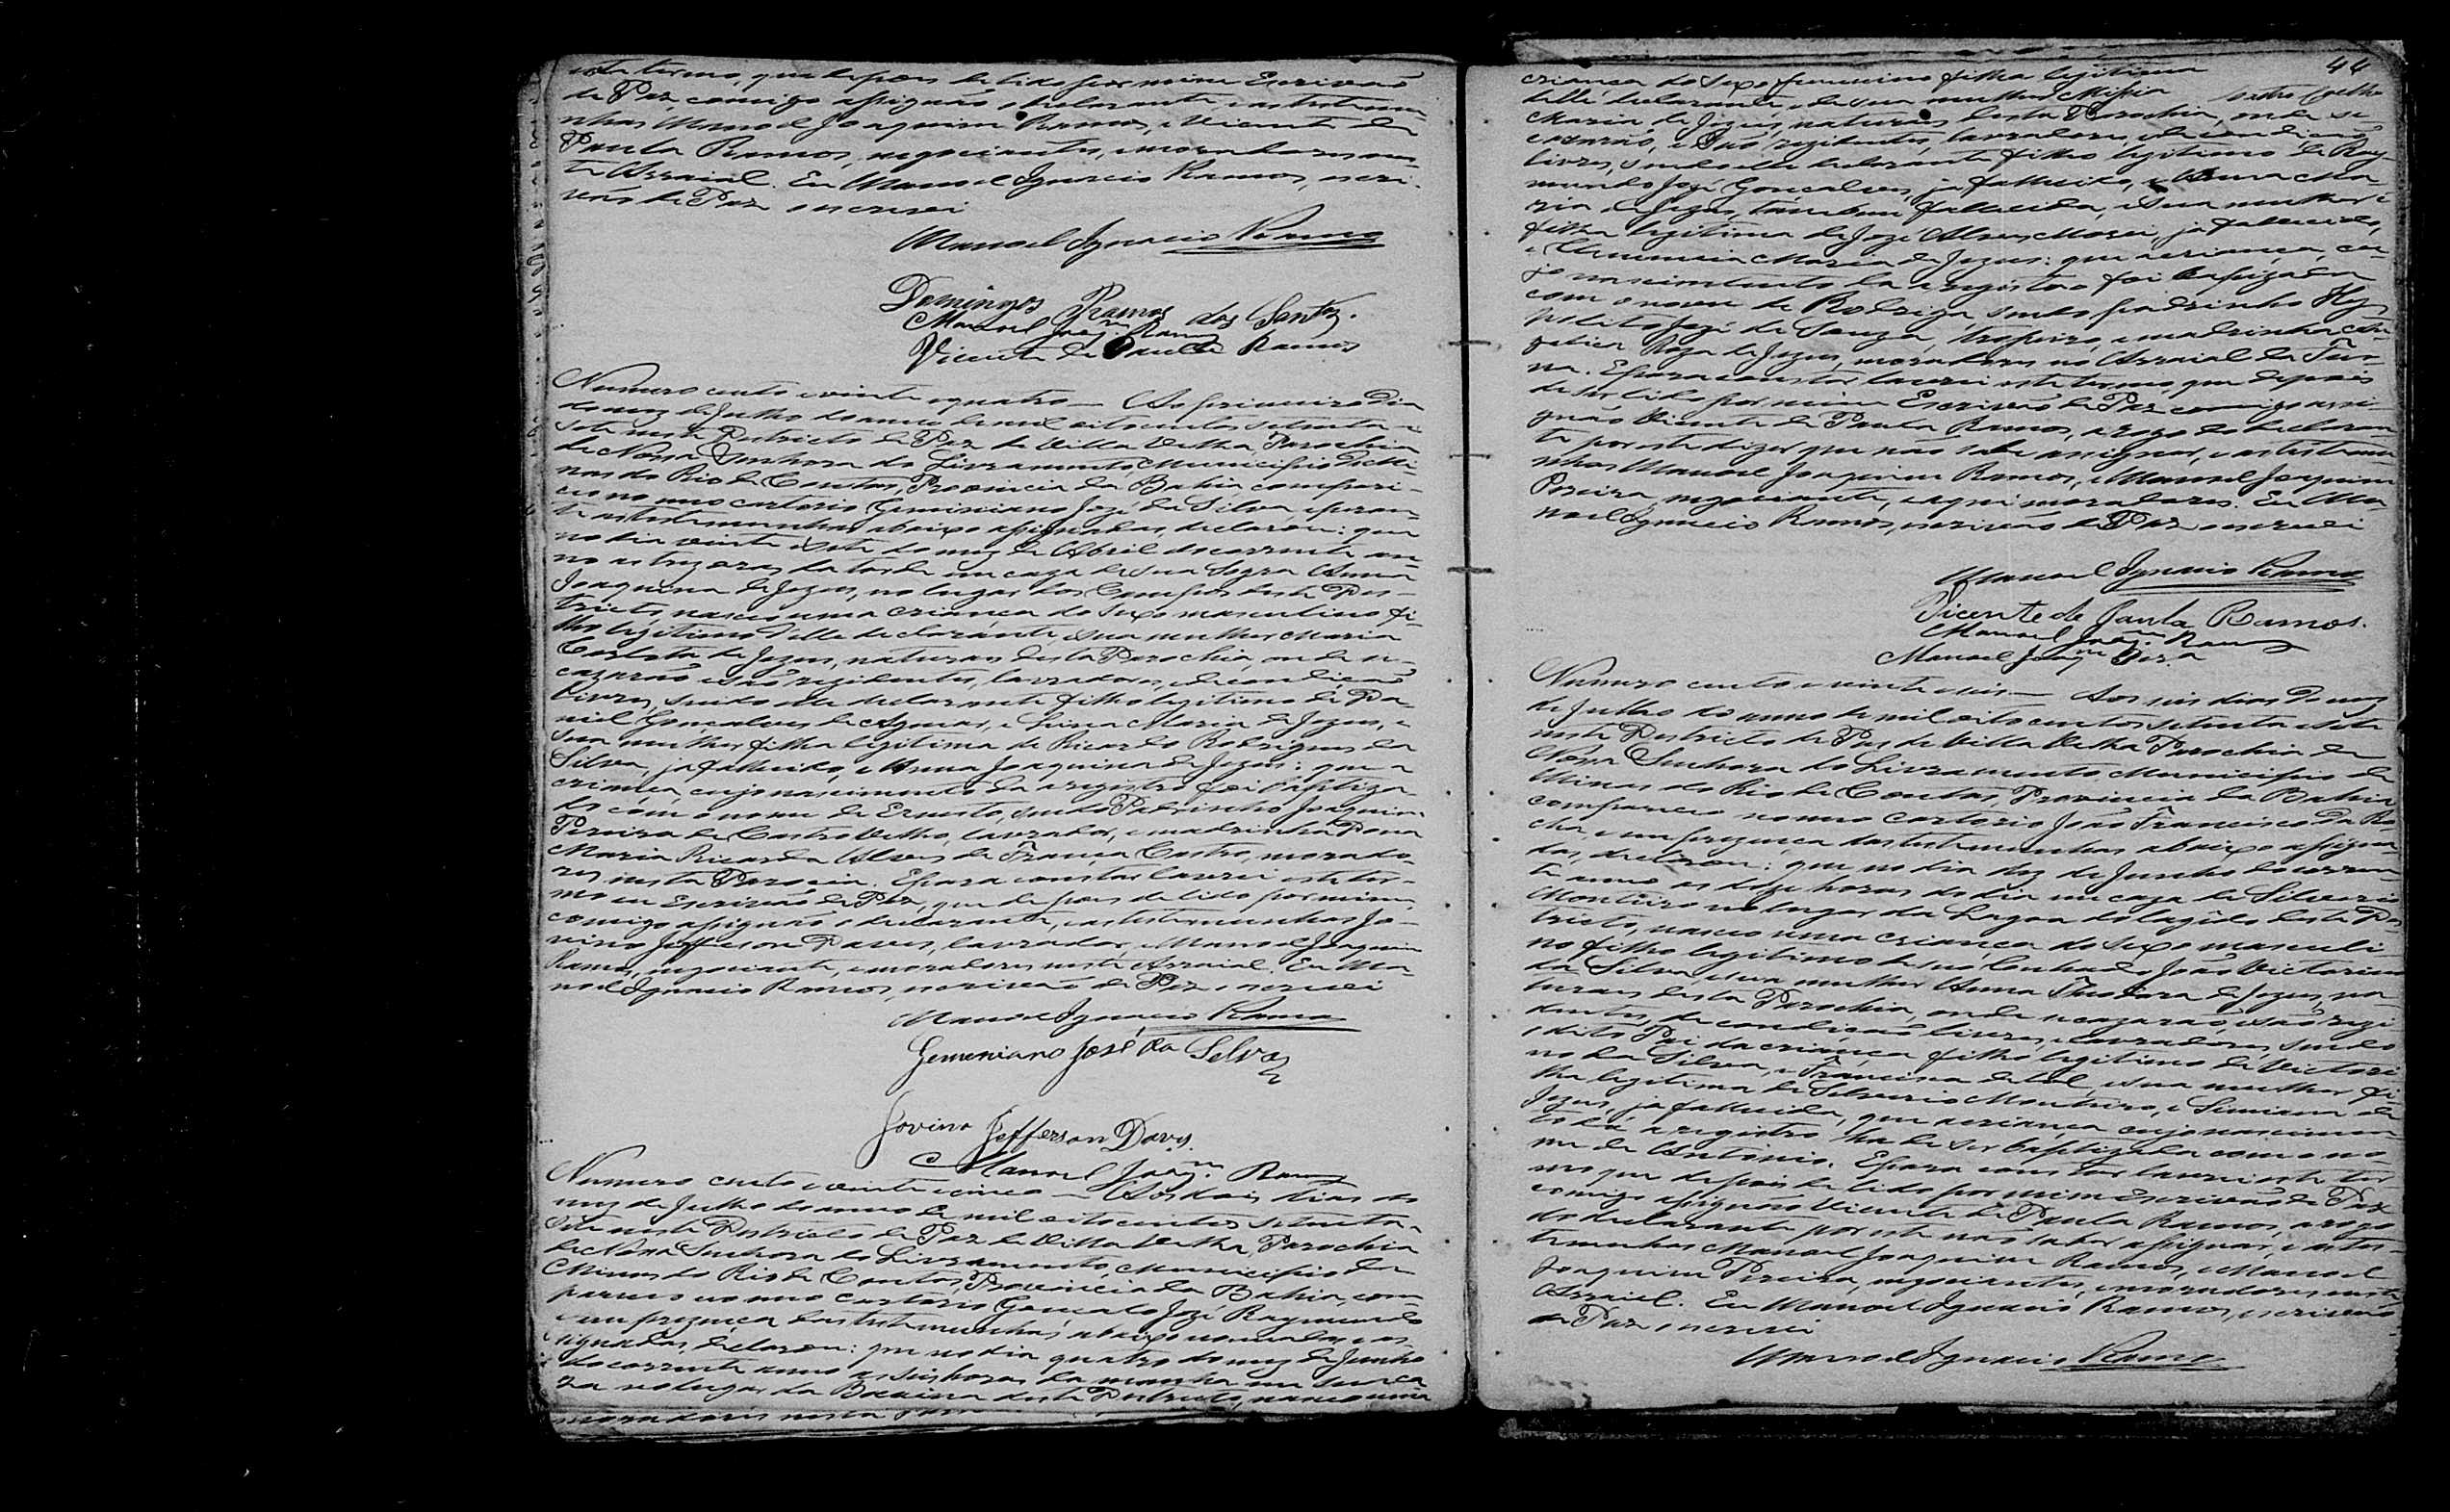 este termo, que depois de lido por mim Escrivaõ
de Paz, comigo assignaõ o declarante, e as testemu-
nhas Manoel Joaquim Ramos, e Vicente de
Paula Ramos, negociantes, e moradores nes-
te Arraial. Eu Manoel Ignacio Ramos, escri-
vaõ de Paz o escrevi
Manoel Ignacio Ramos
Domingos Ramos dos Santos.
Manoel Joaqm Ramos
Vicente de Paula Ramos
Numero cento e vinte e quatro — Ao primeiro dia
do mez de Julho do anno de mil oitocentos setenta e
sete neste Destricto de Paz de Villa Velha, Parochia
de Nossa Senhora do Livramento, Municipio de Mi-
nas do Rio de Contas, Provincia da Bahia, compare-
ceo no meo cartorio Geminiano Jozé da Silva, e peran-
te as testemunhas abaixo assignadas, declarou: que
no dia vinte e sete do mez de Abril do corrente an-
no as trez oras da tarde em caza de sua Sogra Anna
Joaquina de Jezus, no lugar dos Campos deste Des-
tricto, nasceo uma criança do sexo masculino fi-
lho legitimo delle declarante, e sua mulher Maria
de Jezus, naturaes desta Parochia, onde se
cazaraõ e saõ rezidentes, lavradores, e de condiçaõ
livres, sendo elle declarante filho legitimo de Da-
niel Gonçalves de Aguiar, e Maria de Jezus, e
sua mulher filha legitima de Ricardo Rodrigues da
Silva, ja fallecido, e Anna Joaquina de Jezus: que a
criança, cujo nascimento da a registro foi baptiza-
do com o nome de Ernesto, sendo Padrinho Joaquim
Pereira de Castro Velho, lavrador, e madrinha Dona
Maria Ricarda Alves de França Castro, morado-
res nesta Parocia. E para constar lavrei este ter-
mo eu Escrivaõ de Paz, que depois de lido por mim
comigo assignaõ o declarante, e as testemunhas Jo-
vino Jefferson Daves, lavrador, e Manoel Joaquim
Ramos, negociante, e moradores neste Arraial. Eu Ma-
noel Ignacio Ramos, escrivaõ de Paz o escrevi
Manoel Ignacio Ramos
Gemeniano José da Selva
Jovino Jefferson Davys.
Manoel Joaqm Ramos
Numero cento e vinte e cinco — Aos dois dias do
mez de Julho do anno de mil oitocentos setenta e
sete neste Destricto de Paz de Villa Velha, Parochia
de Nossa Senhora do Livramento, Municipio de
Minas do Rio de Contas, Provincia da Bahia, com-
pareceo no meo cartorio Gonçalo Jozé Raymundo
e em prezença das testemunhas abaixo nomeadas, e as-
signadas, declarou: que no dia quatro do mez de Junho
do corrente anno as seis horas da manha em sua ca-
za no lugar da deste Destricto, nasceo uma
44
criança do sexo feminino filha legitima
delle declarante, e de sua mulher
Maria de Jezus, naturaes desta Parochia, onde se
cazaraõ, e saõ rezidentes, lavradores, e de condiçaõ
livres, sendo elle declarante filho legitimo de Ray-
mundo Jozé Gonçalves, ja fallecido, e Anna Ma-
ria de Jezus, tambem fallecida, e sua mulher
filha legitima de Jozé Alves ja fallecido,
e Maria de Jezus: que a criança, cu-
jo nascimento da a registro foi baptizada
com o nome de Rodriga, sendo padrinho Hy-
polito Jozé de Souza, tropeiro, e madrinha An-
gelica Roza de Jezus, moradores no Arraial da Fur-
na. E para constar lavrei este termo, que depois
de ser lido por mim Escrivaõ de Paz comigo assi-
gnaõ Vicente de Paula Ramos, a rogo do declaran-
te por este dizer que naõ sabe assignar, e as testemu-
nhas Manoel Joaquim Ramos, e Manoel Joaquim
Pereira, negociantes, e aqui moradores. Eu Ma-
noel Ignacio Ramos, escrivaõ de Paz o escrevi
Manoel Ignacio Ramos
Vicente de Paula Ramos.
Manoel Joaqm Ramos
Manoel Joaqm Per.a
Numero cento e vinte e seis — Aos seis dias do mez
de Julho do anno de mil oitocentos setenta e sete
neste Destricto de Paz de Villa Velha Parochia de
Nossa Senhora do Livramento, Municipio de
Minas do Rio de Contas, Provincia da Bahia
compareceo no meo cartorio Joaõ Francisco da Ro-
cha, e em prezença das testemunhas abaixo assigna-
das, declarou: que no dia dez de Junho do corren-
te anno as doze horas do dia em caza de Silverio
Monteiro no lugar da Lagoa do deste Des-
tricto, nasceo uma criança do sexo masculi-
no filho legitimo de seo Cunhado Joaõ Victorino
da Silva, e sua mulher Anna Theodora de Jezus, na-
turaes desta Parochia, onde se cazaraõ, e saõ rezi-
dentes, de condiçaõ livres, e lavradores, sendo
o dito Pai da criança filho legitimo de Victori-
no da Silva, e Francisca de tal, e sua mulher fi-
lha legitima de Silverio Monteiro, e Simiana de
Jezus, ja fallecida, que a criança cujo nascimen-
to dá a registro ha de ser baptizada com o no-
me de Antonio. E para constar lavrei este ter-
mo que depois de lido por mim Escrivaõ de Paz
comigo assignaõ Vicente de Paula Ramos, a rogo
do declarante por este naõ saber assignar, e as tes-
temunhas Manoel Joaquim Ramos, e Manoel
Joaquim Pereira, negociantes, e moradores neste
Arraial. Eu Manoel Ignacio Ramos, escrivaõ
de Paz o escrevi
Manoel Ignacio Ramos